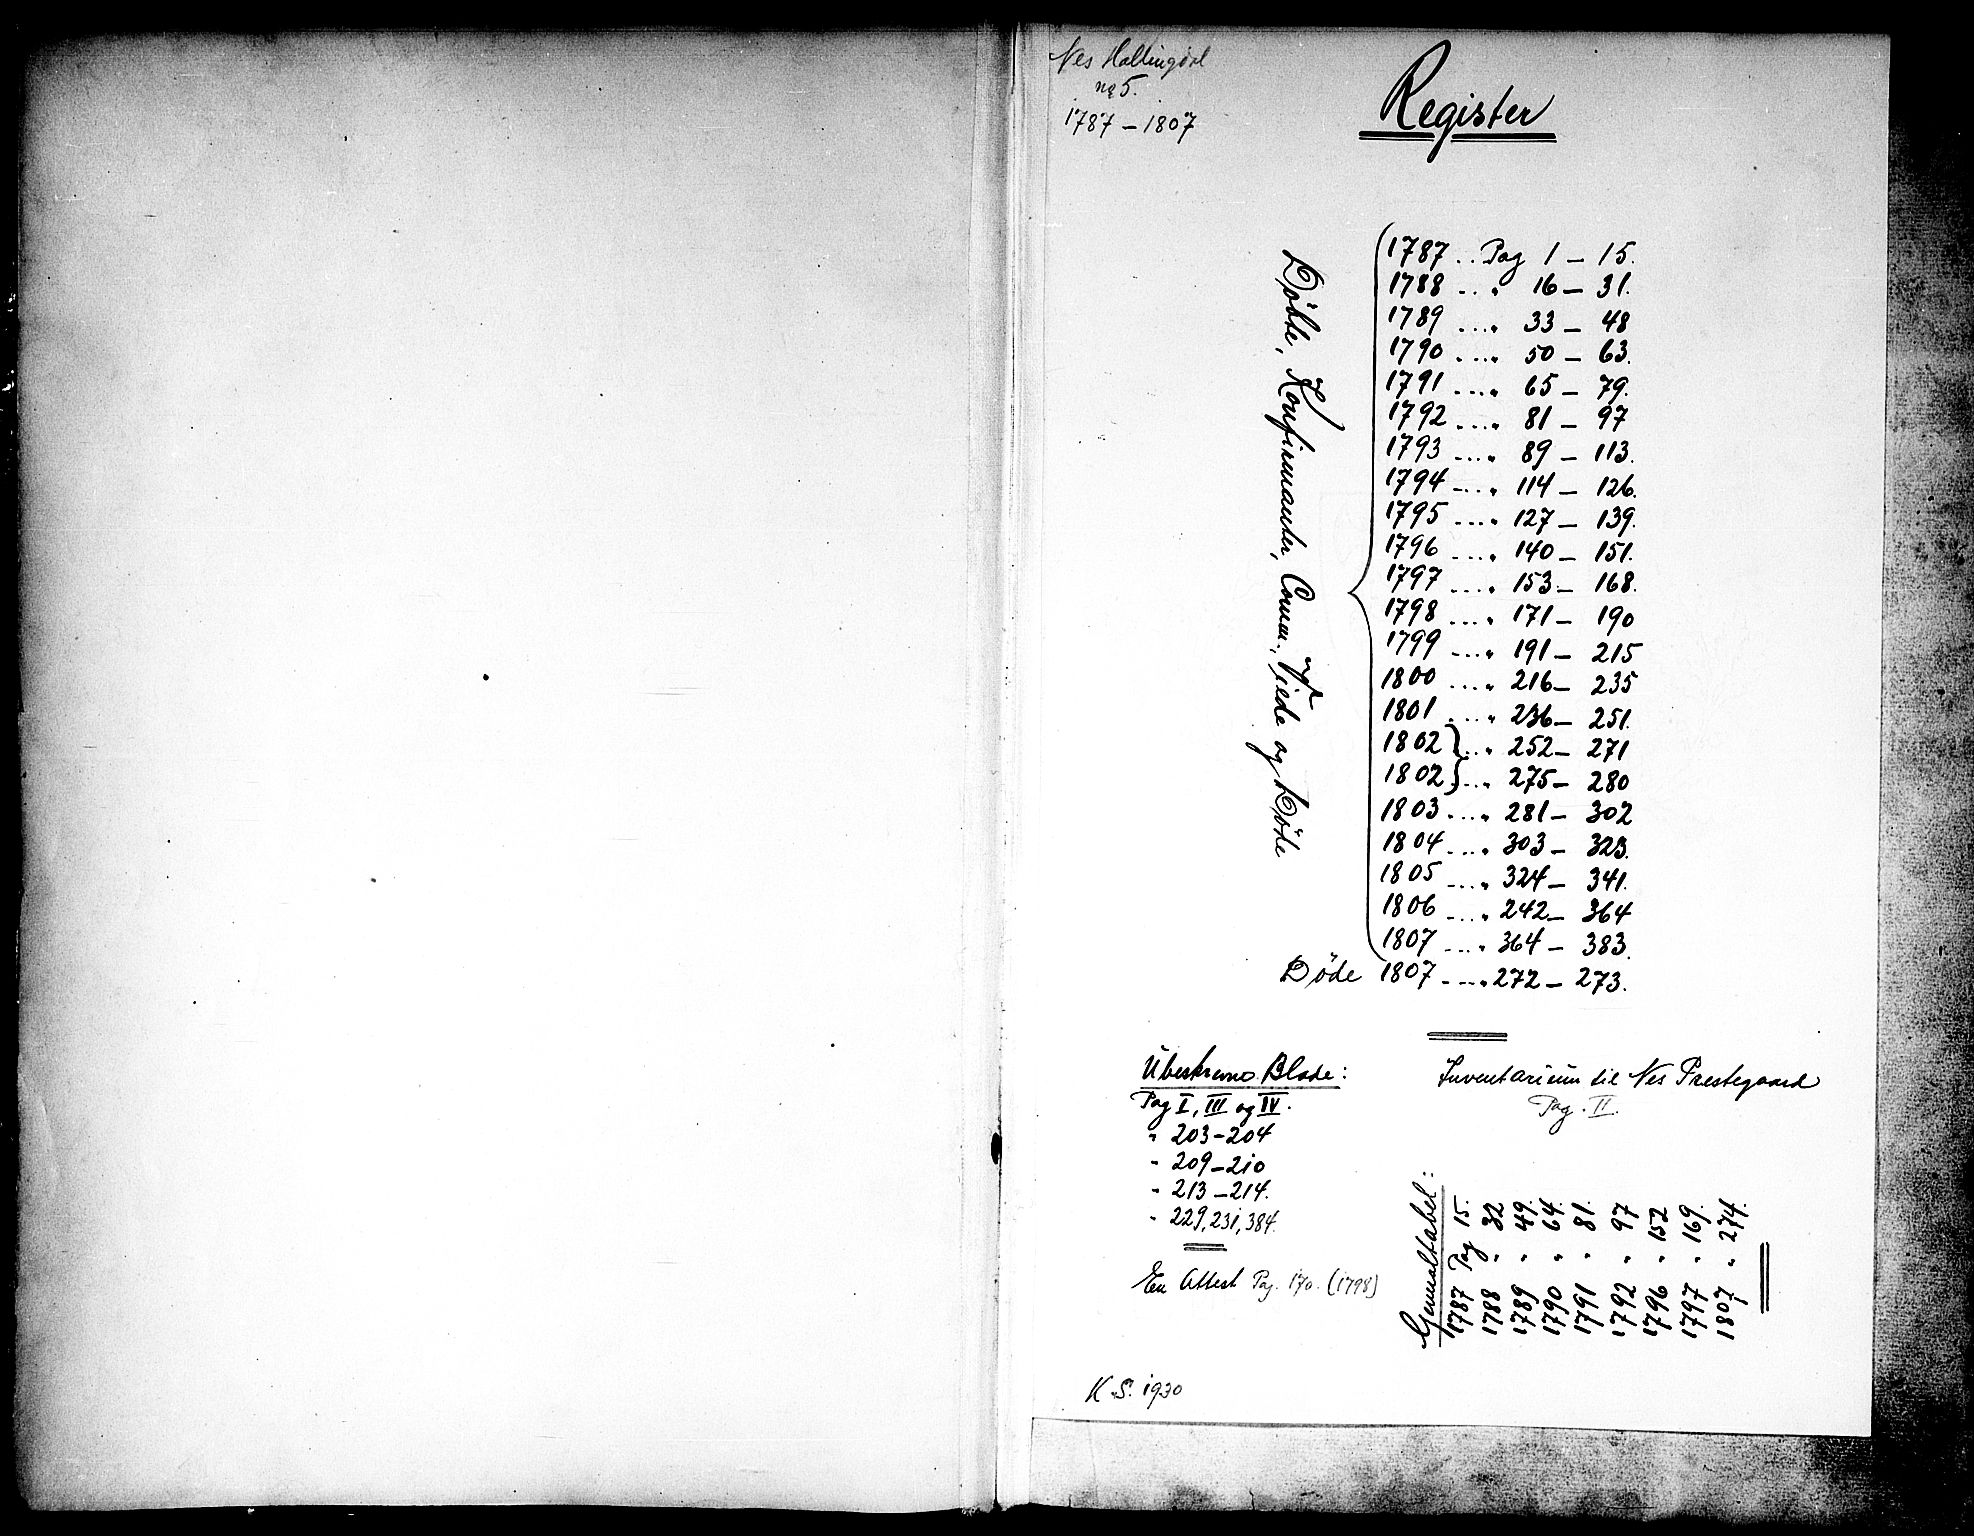 Nes Hallingdal
no 5.
1787 – 1807
Register
Döbte, Konfirmanter, Comm., Viede og Döde
1787 .. Pag 1 – 15.
1788 ... „ 16 – 31.
1789 ... „ 33 – 48
1790 ... „ 50 – 63.
1791 ... „ 65 – 79.
1792 ... „ 81 – 97
1793 ... „ 89 – 113.
1794 ... „ 114 – 126.
1795 ... „ 127 – 139.
1796 ... „ 140 – 151.
1797 ... „ 153 – 168.
1798 ... „ 171 – 190
1799 ... „ 191 – 215
1800 ... „ 216 – 235
1801 ... „ 236 – 251.
1802 } .. „ 252 – 271
1802 } .. „ 275 – 280
1803 ... „ 281 – 302
1804 ... „ 303 – 323.
1805 ... „ 324 – 341.
1806 ... „ 242 – 364
1807 ... „ 364 – 383.
Döde 1807 ... „ 272 – 273.
Ubeskrevne Blade:
Pag I, III og IV.
„ 203 – 204
„ 209 – 210
„ 213 – 214.
„ 229, 231, 384.
En Attest Pag. 170. (1798)
Inventarium til Nes Prestegaard
Pag. II.
Generaltabel:
1787 Pag 15.
1788 „ 32
1789 „ 49.
1790 „ 64.
1791 „ 81.
1792 „ 97
1796 „ 152
1797 „ 169.
1807 „ 274.
K.S. 1930